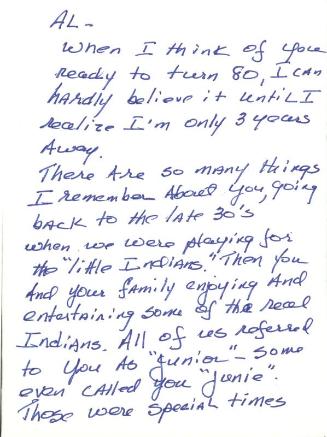 AL-
When I think of you
ready to turn 80, I can
hardly believe it until I
realize I'm only 3 years
away.
There are so many things
I remember about you, going
back to the late 30's
when we were playing for
the "little Indians." Then you
and your family enjoying and
entertaining some of the real
Indians. All of us referred
to you as "Junior" - some
even called you "Junie".
Those were special times